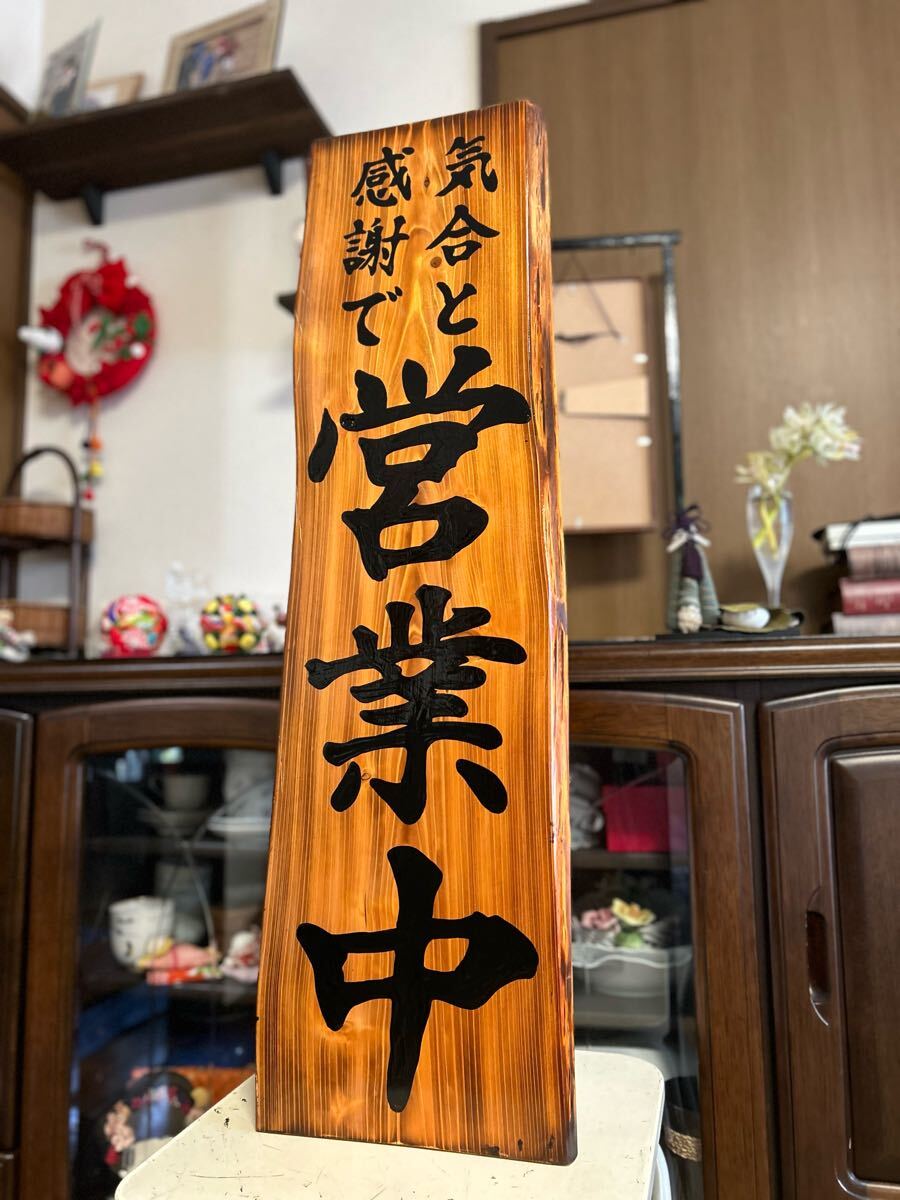 気合と
感謝で
営業中